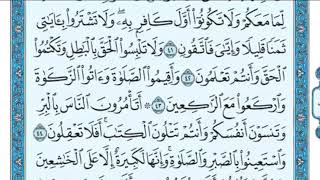 لِّمَا مَعَكُمْ وَلَا تَكُونُوٓا۟ أَوَّلَ كَافِرٍۭ بِهِۦ ۖ وَلَا تَشْتَرُوا۟ بِـَٔايَٰتِى
ثَمَنًا قَلِيلًا وَإِيَّٰىَ فَٱتَّقُونِ ٤١ وَلَا تَلْبِسُوا۟ ٱلْحَقَّ بِٱلْبَٰطِلِ وَتَكْتُمُوا۟
ٱلْحَقَّ وَأَنتُمْ تَعْلَمُونَ ٤٢ وَأَقِيمُوا۟ ٱلصَّلَوٰةَ وَءَاتُوا۟ ٱلزَّكَوٰةَ
وَٱرْكَعُوا۟ مَعَ ٱلرَّٰكِعِينَ ٤٣ ۞ أَتَأْمُرُونَ ٱلنَّاسَ بِٱلْبِرِّ
وَتَنسَوْنَ أَنفُسَكُمْ وَأَنتُمْ تَتْلُونَ ٱلْكِتَٰبَ ۚ أَفَلَا تَعْقِلُونَ ٤٤
وَٱسْتَعِينُوا۟ بِٱلصَّبْرِ وَٱلصَّلَوٰةِ ۚ وَإِنَّهَا لَكَبِيرَةٌ إِلَّا عَلَى ٱلْخَٰشِعِينَ